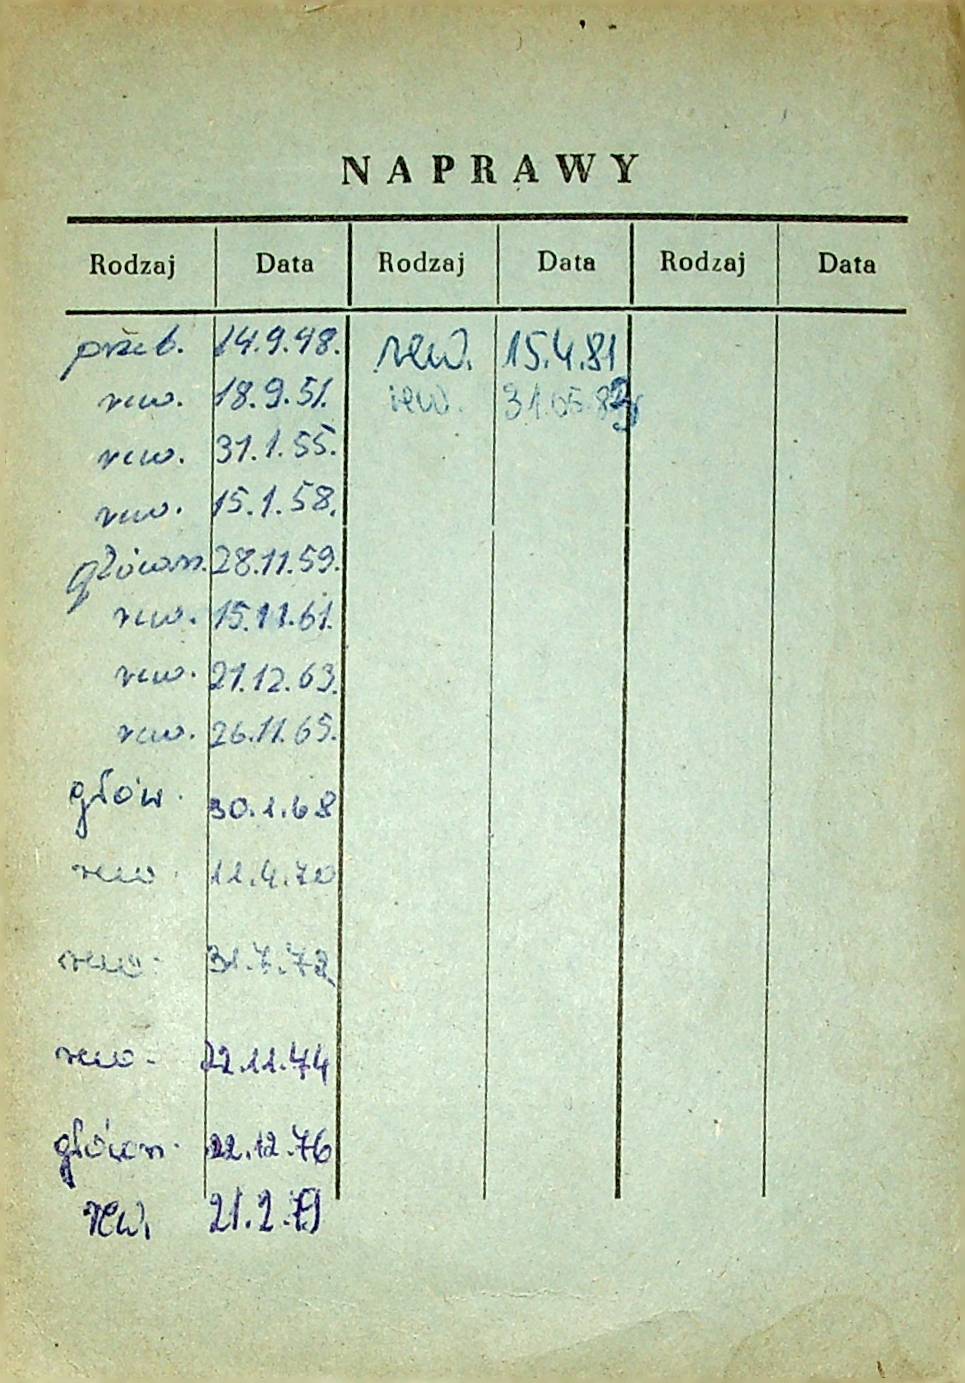 NAPRAWY
Rodzaj Data Rodzaj Data Rodzaj Data
przeb. 14.9.48. rew. 15.4.81
rew. 18.9.51. rew. 31.05.83
rew. 31.1.55.
rew. 15.1.58.
główn. 28.11.59.
rew. 15.11.61.
rew. 21.12.63.
rew. 26.11.65.
głów. 30.1.68
rew. 11.4.70
rew. 31.7.72
rew. 22.11.74
główn. 22.12.76
rew. 21.2.79